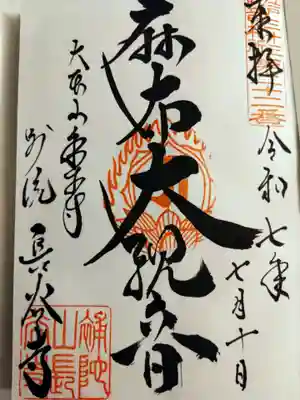 奉拝
令和七年
七月十日
麻布大観音
大本山永平寺
別院 長谷寺
補陀
山長